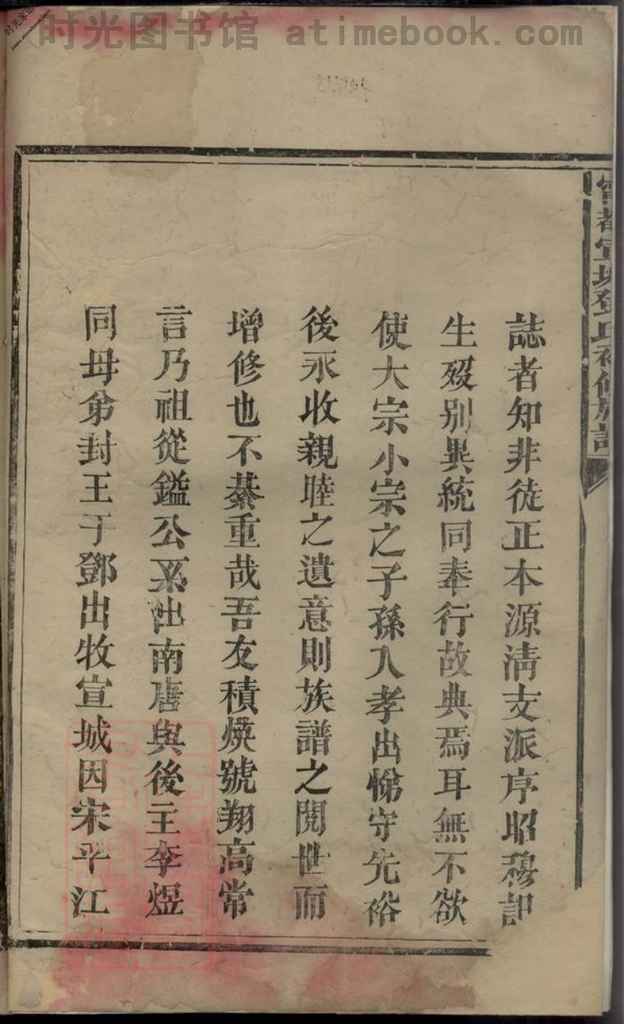 时光图书馆 atimebook.com
誌者知非徒正本源清支派序昭穆記
生歿別異統同奉行故典焉耳無不欲
使大宗小宗之子孫入孝出悌守先裕
後永收親睦之遺意則族譜之閱世而
增修也不綦重哉吾友積煥號翔高常
言乃祖從鎰公系出南唐與後主李煜
同母弟封王于鄧出牧宣城因宋平江